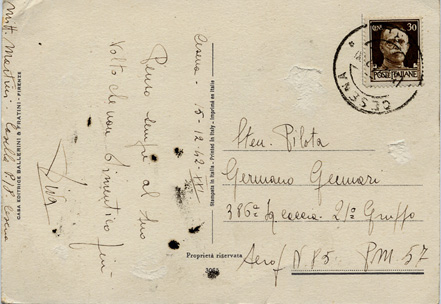 Cesena - 15-12-42-XXI
Penso sempre al tuo
Volto che non dimentico
Mitt. Casella
CASA EDITRICE BALLERINI & FRATINI - FIRENZE
Stampata in Italia - Printed in Italy - Imprimé en Italie
Proprietà riservata
30
POSTE ITALIANE
CESENA
Sten. Pilota
Germano Gennari
386ª Sq caccia - 21º Gruppo
Aerof N 85 PM 57